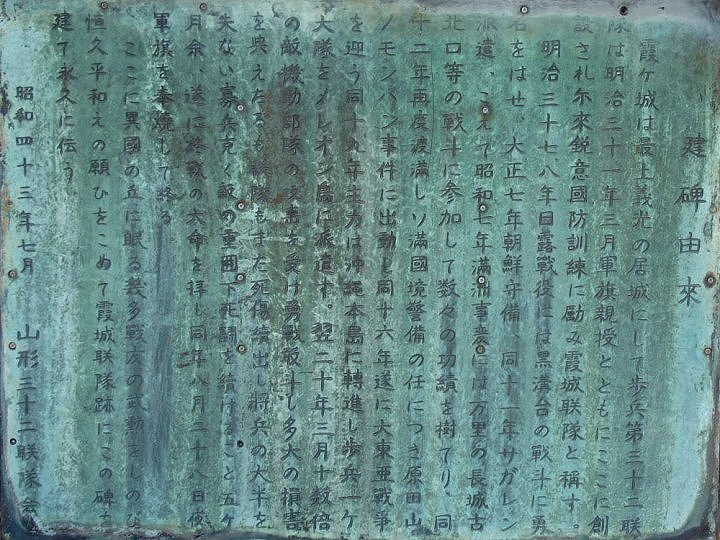 建碑由来
霞ヶ城は最上義光の居城にして歩兵第三十二联
隊は明治三十一年三月軍旗親授とともにここに創
設され尓來鋭意國防訓練に励み霞城联隊と称す。
明治三十七、八年日露戦役には黒溝台の戦斗に勇
名をはせ、大正七年朝鮮守備、同十一年サガレン
派遣、こえて昭和七年滿洲事変には万里の長城古
北口等の戦斗に参加して数々の功績を樹てり、同
十二年再度渡満しソ滿國境警備の任につき原田山
ノモンハン事件に出動し同十六年遂に大東亜戦爭
を迎う同十九年主力は沖縄本島に轉進し歩兵一ケ
大隊をメレオン島に派遣す。翌二十年三月十数倍
の敵機動部隊の攻書を受け勇戦敢斗し多大の損害
を與えたるも联隊もまた死傷續出し將兵の大半を
失ない寡兵克く敵の重囲下死闘を續けること五ケ
月余、遂に終戦の大命を拝し同年八月二十八日夜
軍旗を奉燒して終る
ここに異國の丘に眠る幾多戦友の武勲をしのび
恒久平和えの願ひをこめて霞城联隊跡にこの碑を
建て永久に伝う
昭和四十三年七月 山形三十二联隊会